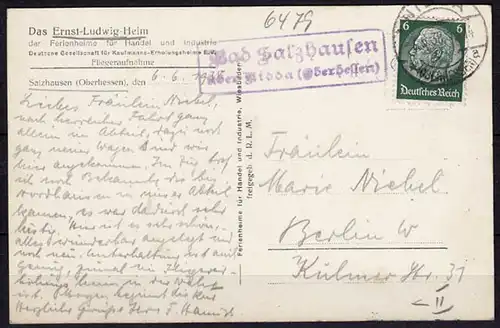 6479
Das Ernst-Ludwig-Heim
der Ferienheime für Handel und Industrie
Deutsche Gesellschaft für Kaufmanns-Erholungsheime E.V.
Fliegeraufnahme
Salzhausen (Oberhessen), den 6.6.
Bad Salzhausen
über Nidda (Oberhessen)
6 6
Deutsches Reich
Liebes Fräulein Niebel,
nach herrlicher Fahrt ganz
allein im Abteil, dazu noch
ganz neuer Wagen sind wir
hier angekommen. Im Zug traf
ich noch Bekannte, die bis
Nordhausen in unser Abteil
kamen, es war dadurch sehr
lustig. Hier ist es sehr schön,
alles wunderbar angelegt und
noch neu. Unterhaltung ist auch
genug, zumal ein
in der Nähe
ist. Morgen beginnt die Kur
Herzliche Grüße Ihre F.
Ferienheime für Handel und Industrie, Wiesbaden
freigegeb. d. R.L.M.
Fräulein
Marie Niebel
Berlin W
Kulmer Str. 31
II